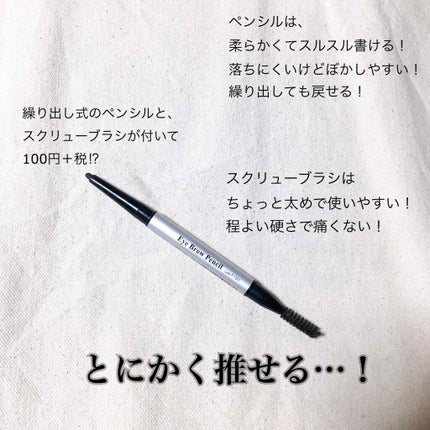 ペンシルは、
柔らかくてスルスル書ける！
落ちにくいけどぼかしやすい！
繰り出しても戻せる！
繰り出し式のペンシルと、
スクリューブラシが付いて
100円＋税⁉
スクリューブラシは
ちょっと太めで使いやすい！
程よい硬さで痛くない！
Eye Brow Pencil
とにかく推せる…！